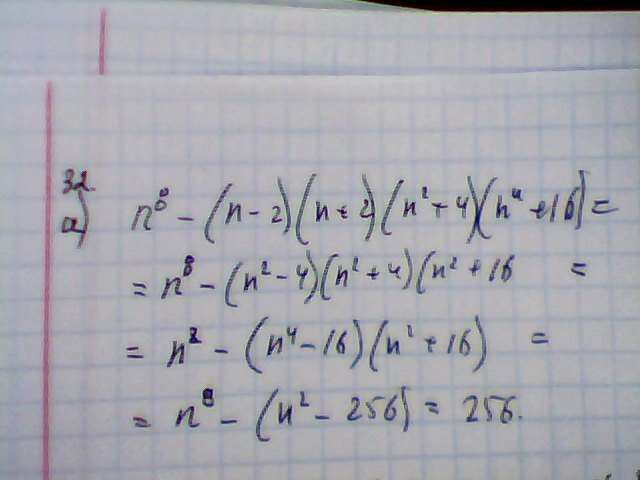 32.
а) n⁸ - (n-2)(n+2)(n²+4)(n⁴+16) =
= n⁸ - (n²-4)(n²+4)(n²+16 =
= n⁸ - (n⁴-16)(n²+16) =
= n⁸ - (n² - 256) = 256.